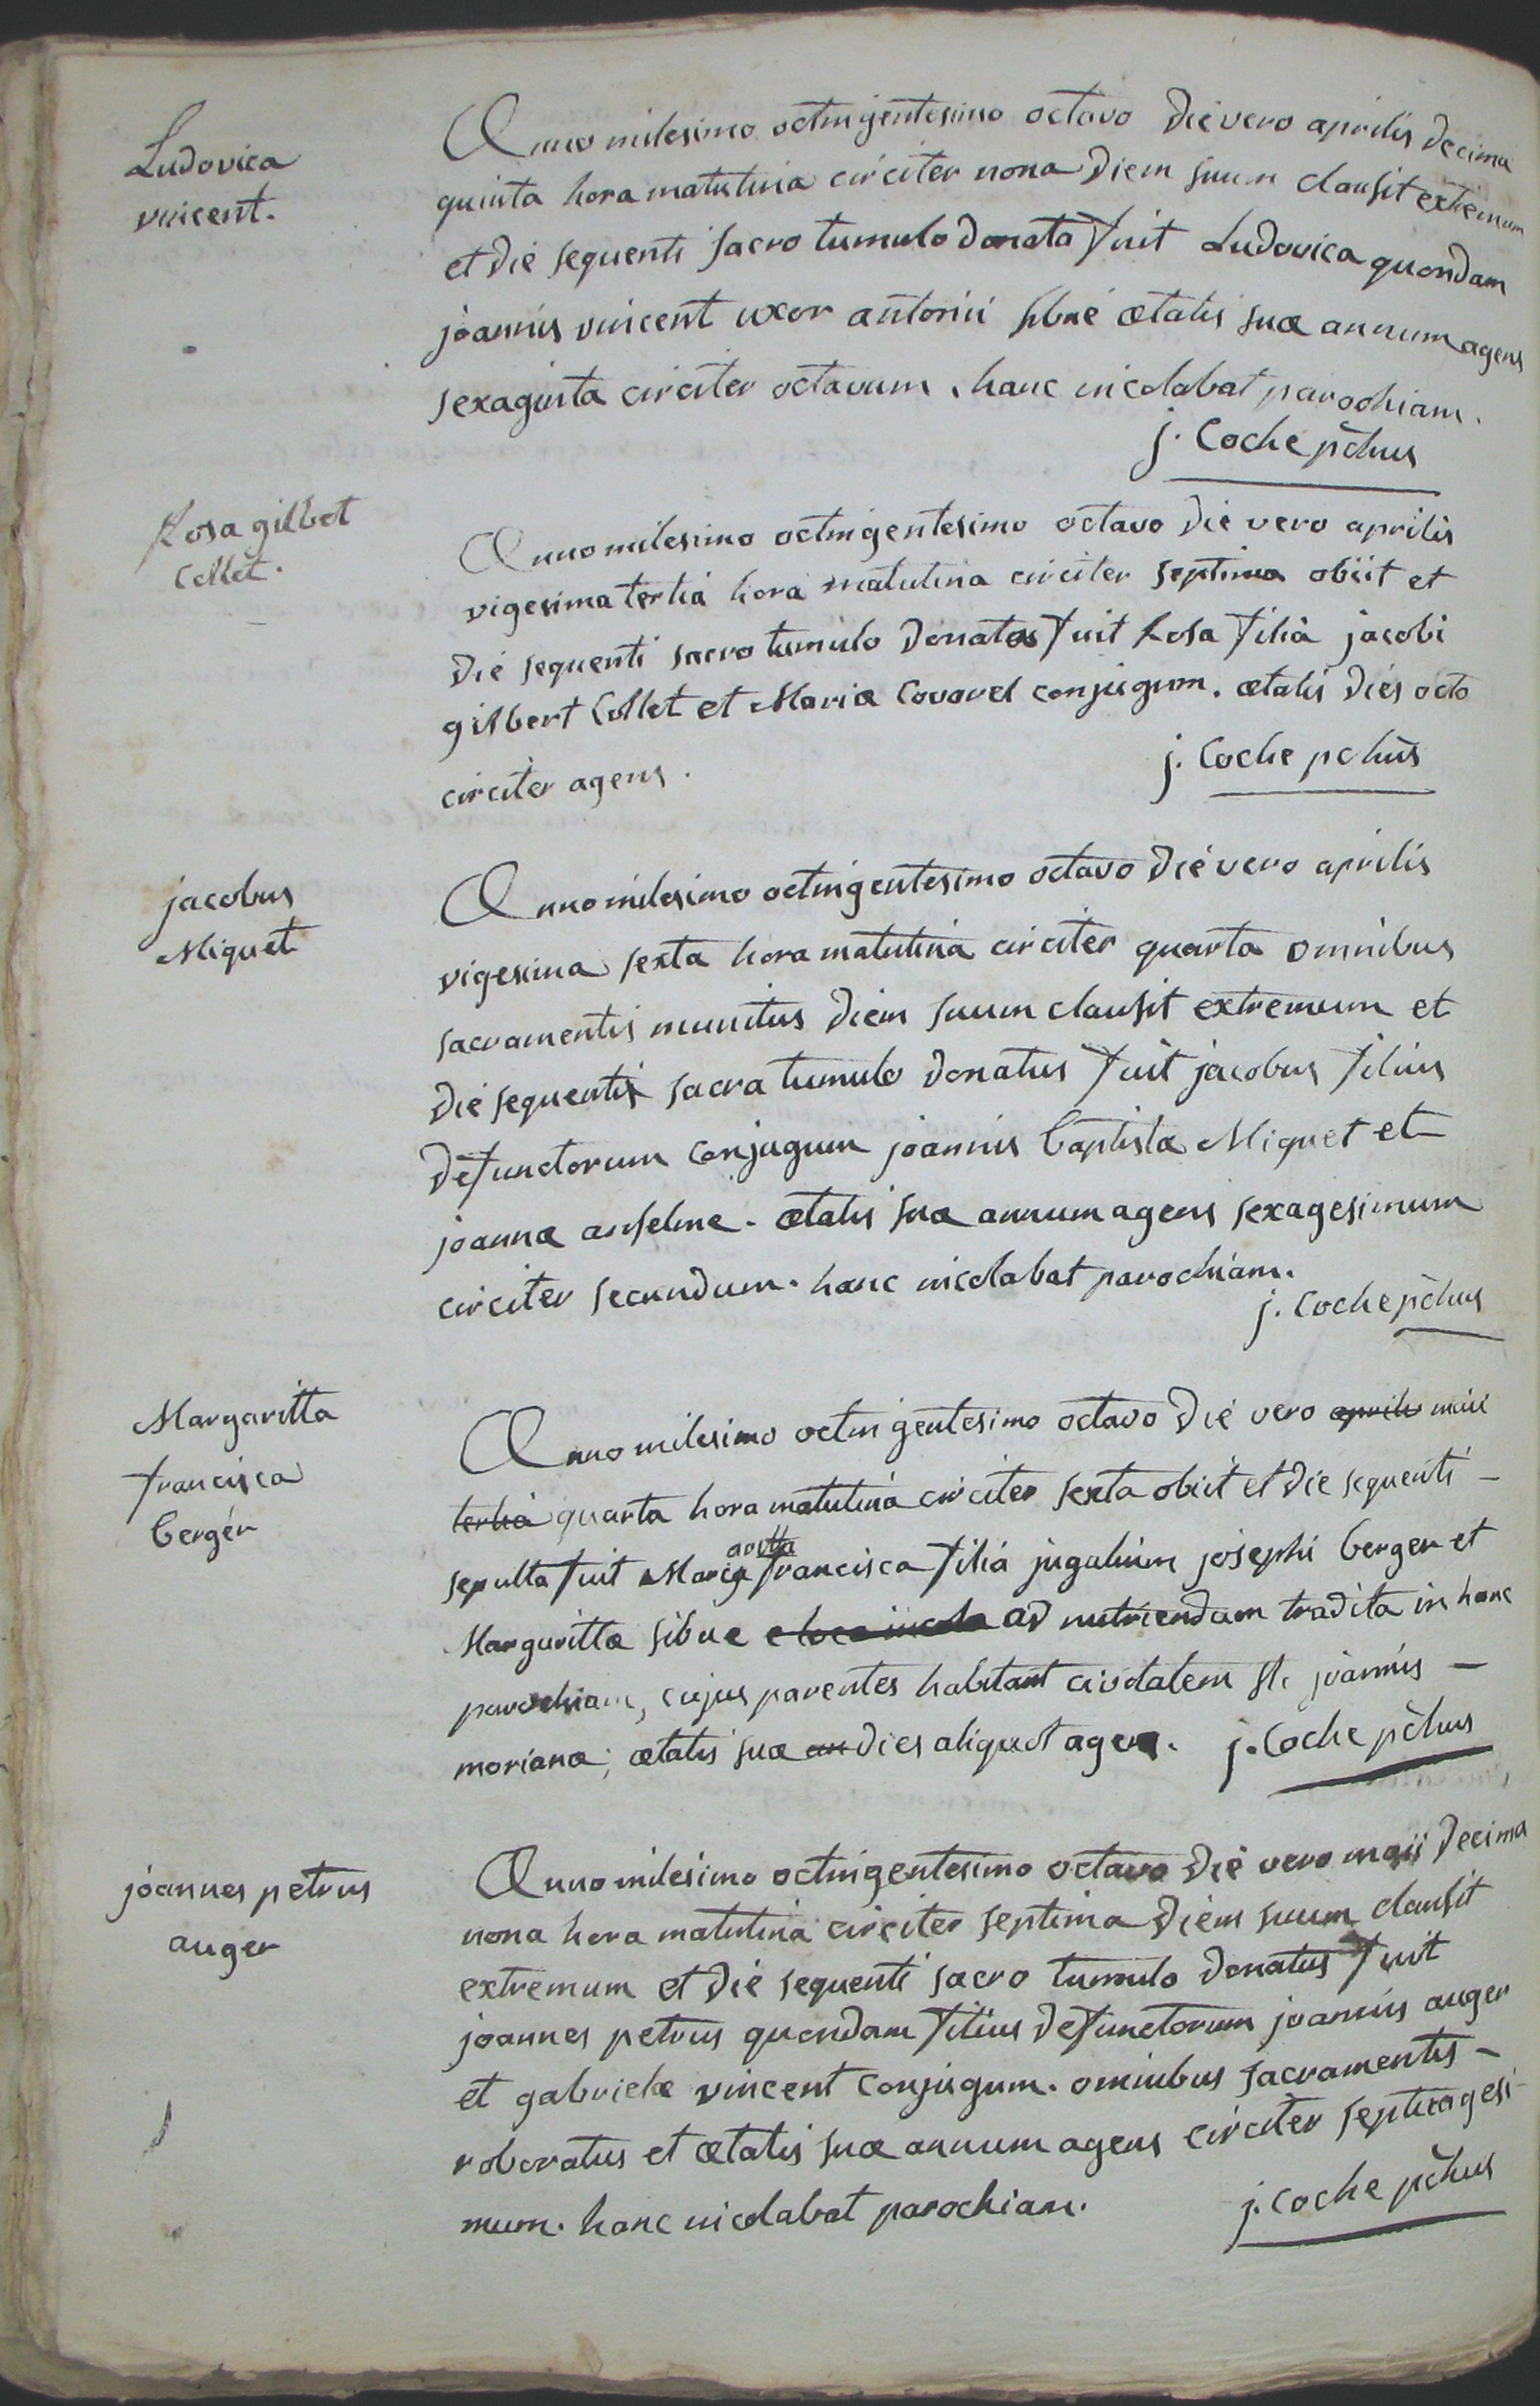 Ludovica
vincent.
Anno milesimo octingentesimo octavo die vero aprilis decima
quinta hora matutina circiter nona diem suum clausit extremum
et die sequenti sacro tumulo donata fuit Ludovica quondam
joannis vincent uxor antonii sibué ætatis suæ annum agens
sexaginta circiter octavum, hanc incolabat parochiam.
j. Coche pchus
Rosa gilbert
Collet.
Anno milesimo octingentesimo octavo die vero aprilis
vigesima tertia hora matutina circiter septima obiit et
die sequenti sacro tumulo donata fuit Rosa filia jacobi
gilbert Collet et Mariæ Covarel conjugum. ætatis dies octo
circiter agens.
j. Coche pchus
jacobus
Miquet
Anno milesimo octingentesimo octavo die vero aprilis
vigesima sexta hora matutina circiter quarta omnibus
sacramentis munitus diem suum clausit extremum et
die sequenti sacra tumulo donatus fuit jacobus filius
defunctorum conjugum joannis baptistæ Miquet et
joannæ anselme. ætatis suæ annum agens sexagesimum
circiter secundum. hanc incolabat parochiam.
j. Coche pchus
Margaritta
francisca
berger
Anno milesimo octingentesimo octavo die vero aprilis maii
tertia quarta hora matutina circiter sexta obiit et die sequenti -
sepulta fuit Margaritta francisca filia jugalium josephi berger et
Margarittæ sibue ad nutriendam tradita in hanc
parochiam, cujus parentes habitant civitatem sti joannis -
morianæ; ætatis suæ an dies aliquot agens. j. Coche pchus
joannes petrus
auger
Anno milesimo octingentesimo octavo die vero maii decima
nona hora matutina circiter septima diem suum clausit
extremum et die sequenti sacro tumulo donatus fuit
joannes petrus quondam filius defunctorum joannis auger
et gabrielæ vincent conjugum. omnibus sacramentis -
roboratus et ætatis suæ annum agens circiter septuagesi-
mum. hanc incolabat parochiam.
j. Coche pchus